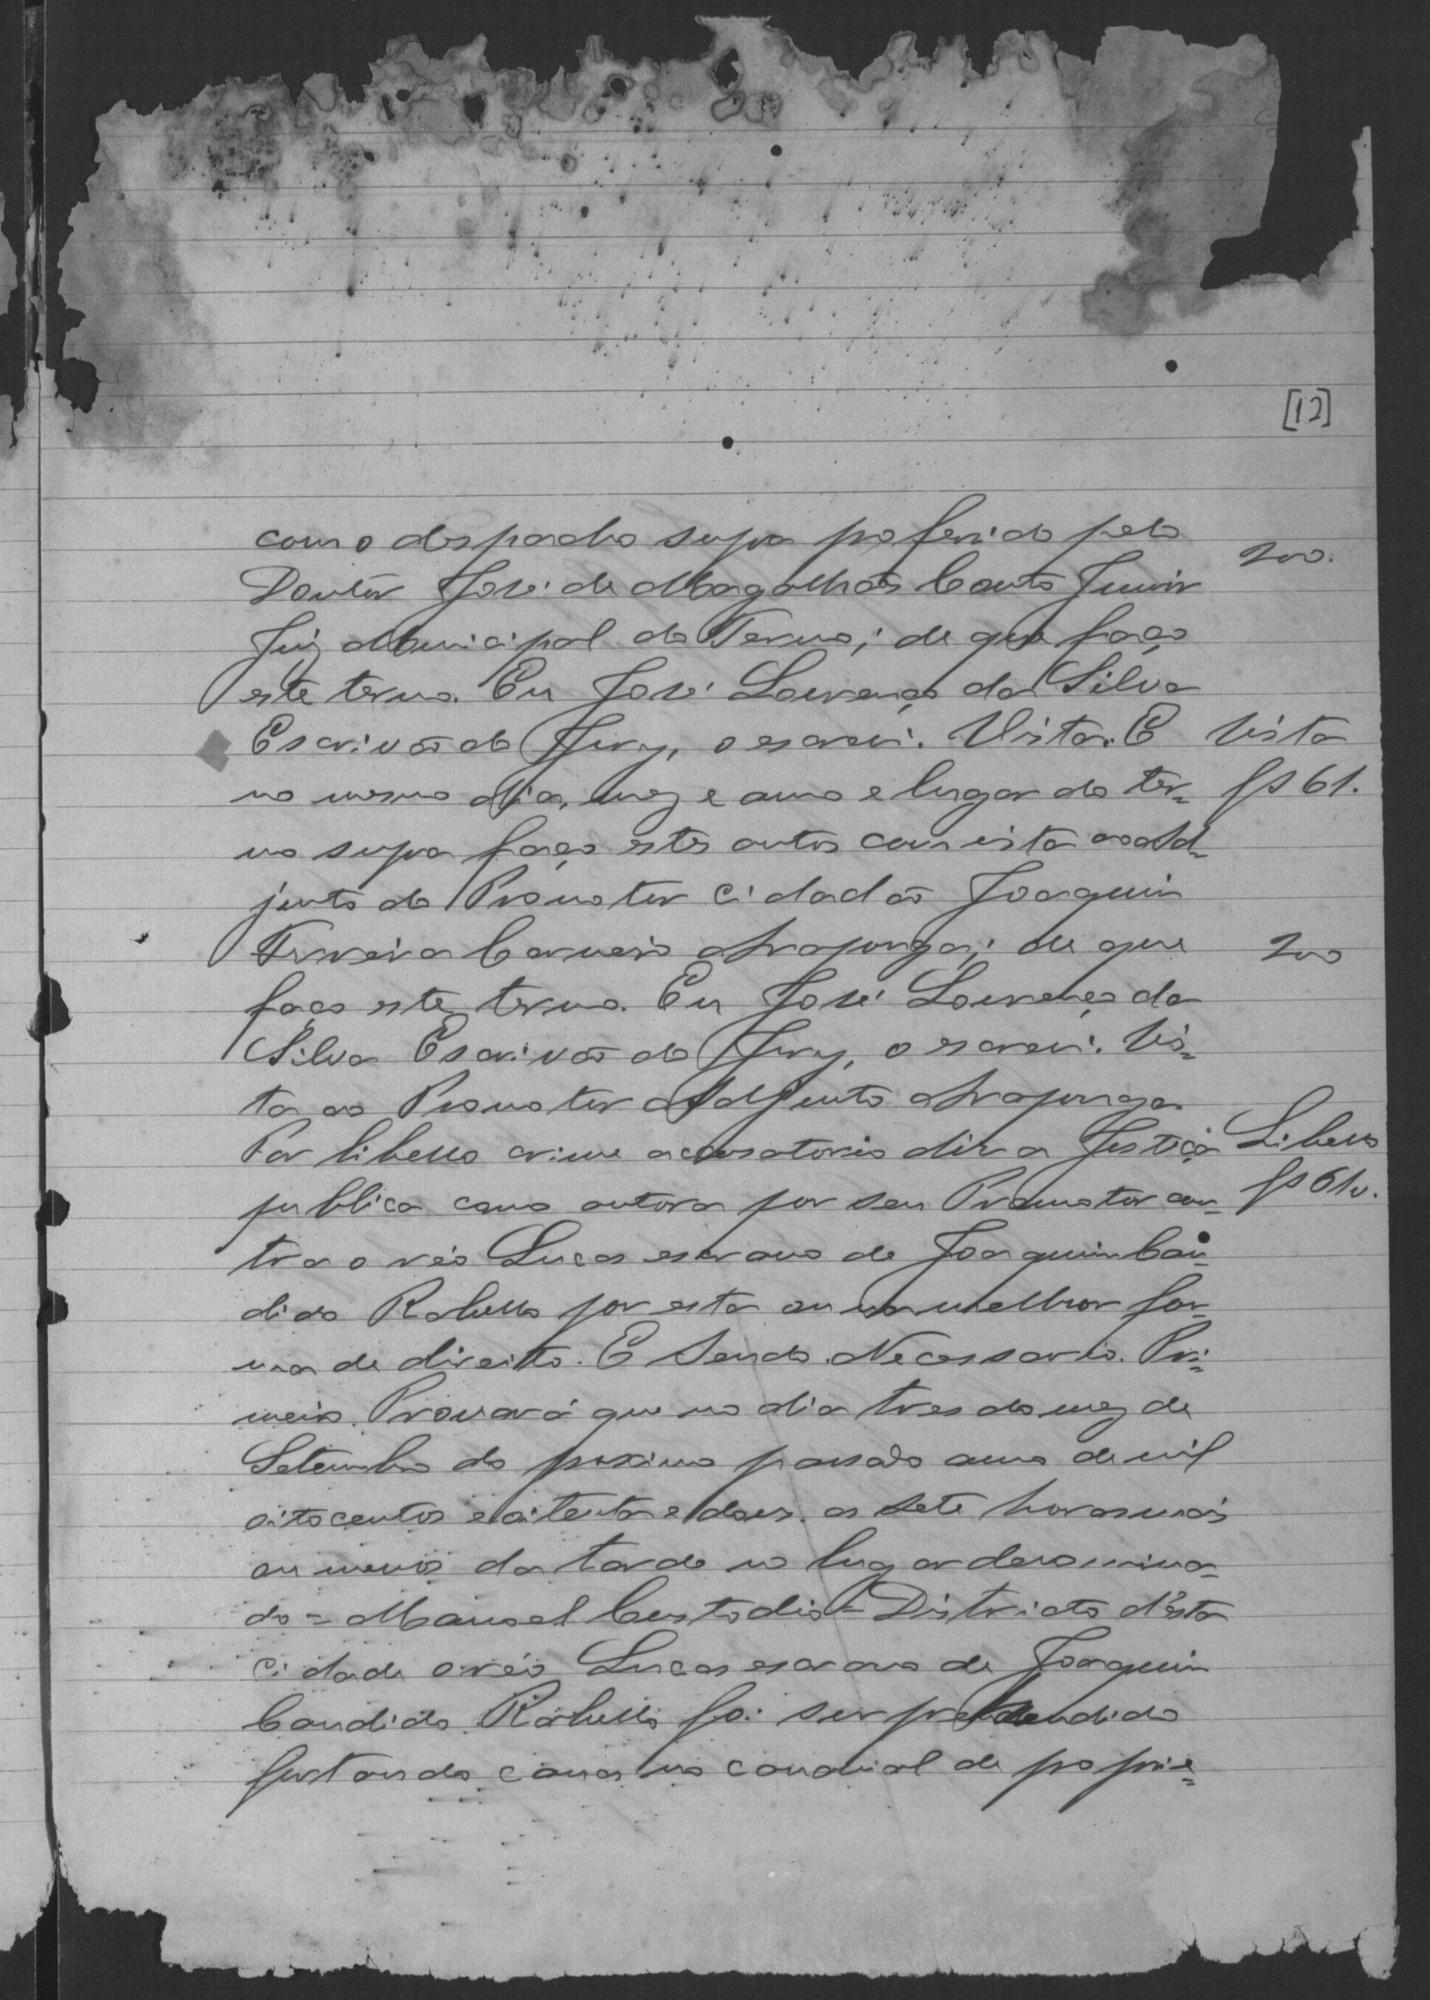 [12]
com o despacho supra proferido pelo
200.
Doutor José de Magalhães Couto Junior
Juiz Municipal do Termo; de que faço
este termo. Eu José Lourenço da Silva
Escrivão do Jury, o escrevi. Vista. E
Vista
no mesmo dia, mez e anno e lugar do ter=
fs 61.
mo supra faço estes autos com vista ao Ad=
junto do Promotor Cidadão Joaquim
Ferreira Carneiro Araponga; de que
200
faço este termo. Eu José Lourenço da
Silva Escrivão do Jury, o escrevi. Vis=
ta ao Promotor Adjunto Araponga
Por libello crime accusatorio diz a Justiça
Libello
publica como autora por seu Promotor con=
fs 61v.
tra o réo Lucas escravo de Joaquim Can=
dido Rabello por esta ou na melhor for=
ma de direito. E Sendo Necessario. Pri=
meiro. Provará que no dia tres do mez de
Setembro do proximo passado anno de mil
oitocentos e oitenta e dois, as sete horas mais
ou menos da tarde no lugar denomina=
do = Manoel Custodio = Districto d'esta
cidade o réo Lucas escravo de Joaquim
Candido Rabello foi surprehendido
furtando canas no canavial de proprie=